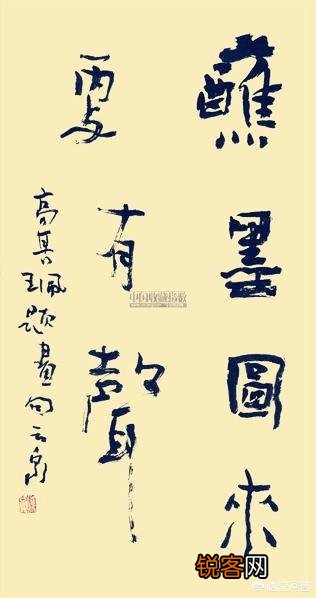 蘸墨圖來
處有聲
高其珮題畫句云泉
中国收藏指数
锐客网